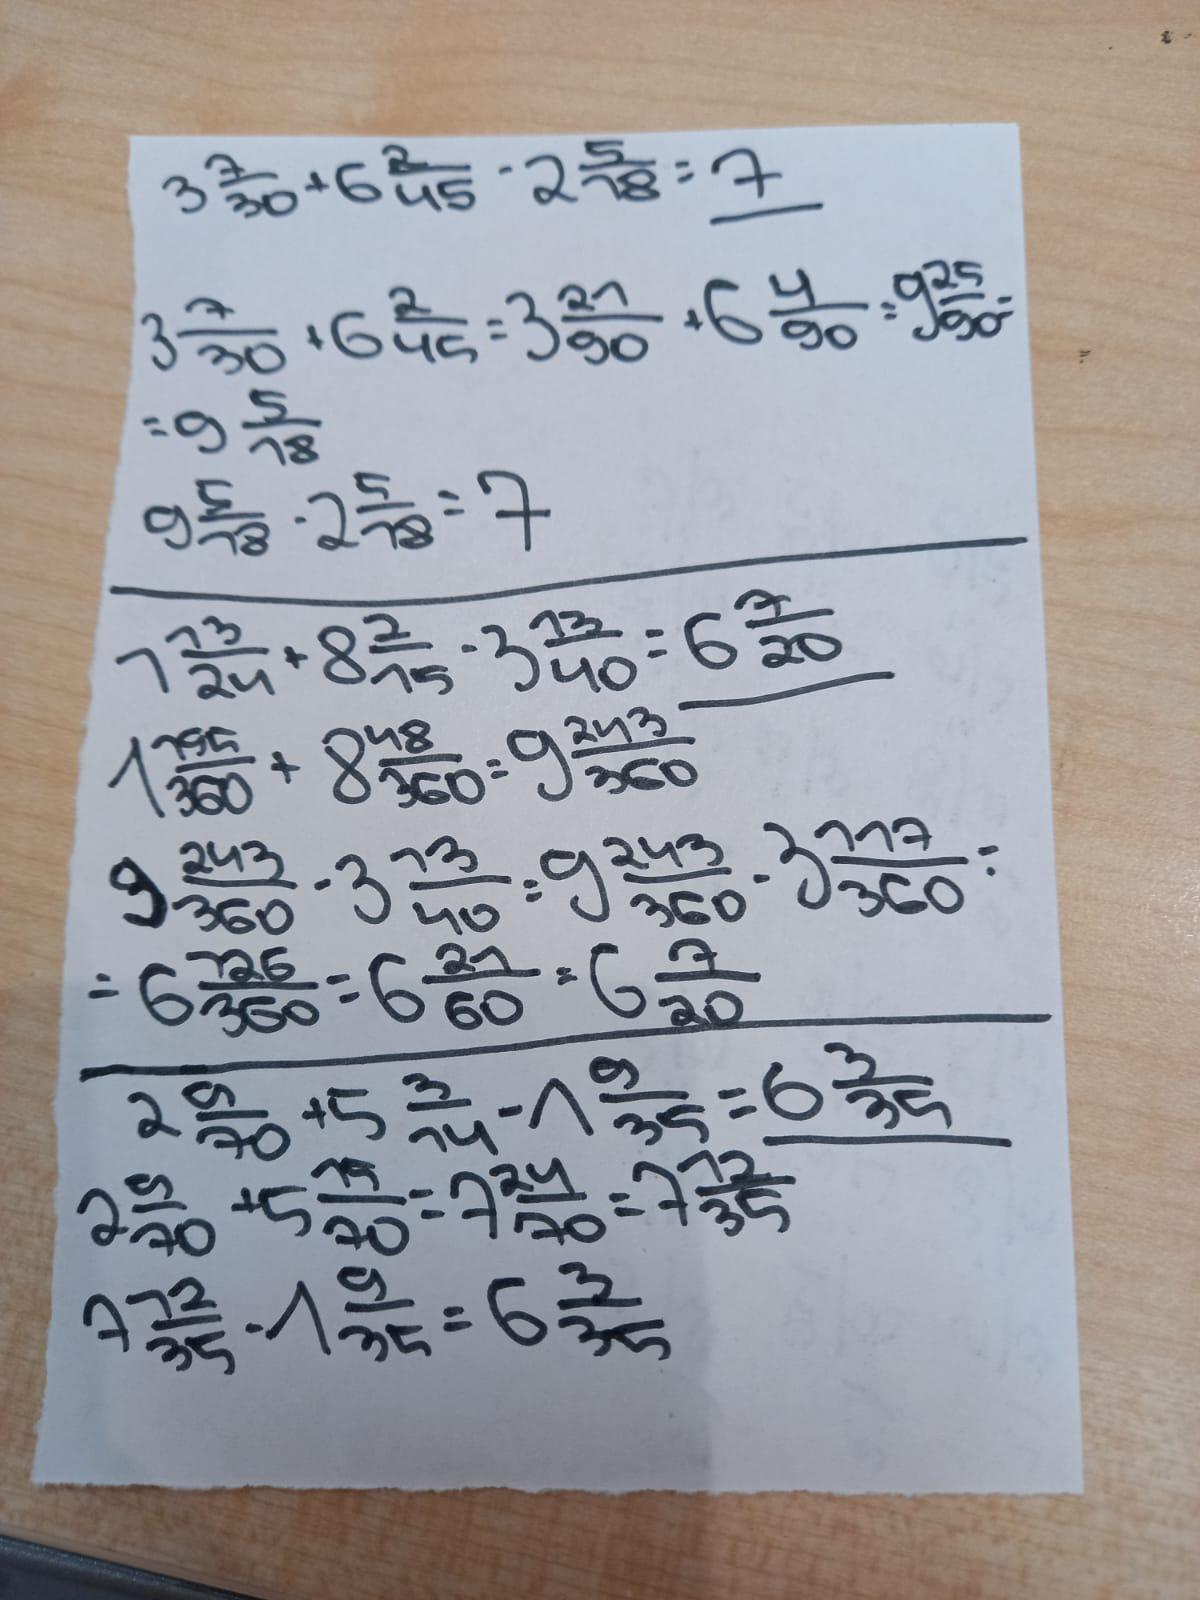 3 7/30 + 6 2/45 - 2 5/18 = 7
3 7/30 + 6 2/45 = 3 21/90 + 6 4/90 = 9 25/90 =
= 9 5/18
9 5/18 - 2 5/18 = 7
1 13/24 + 8 2/15 - 3 13/40 = 6 7/20
1 195/360 + 8 48/360 = 9 243/360
9 243/360 - 3 13/40 = 9 243/360 - 3 117/360 =
= 6 126/360 = 6 21/60 = 6 7/20
2 9/70 + 5 3/14 - 1 9/35 = 6 3/35
2 9/70 + 5 15/70 = 7 24/70 = 7 12/35
7 12/35 - 1 9/35 = 6 3/35